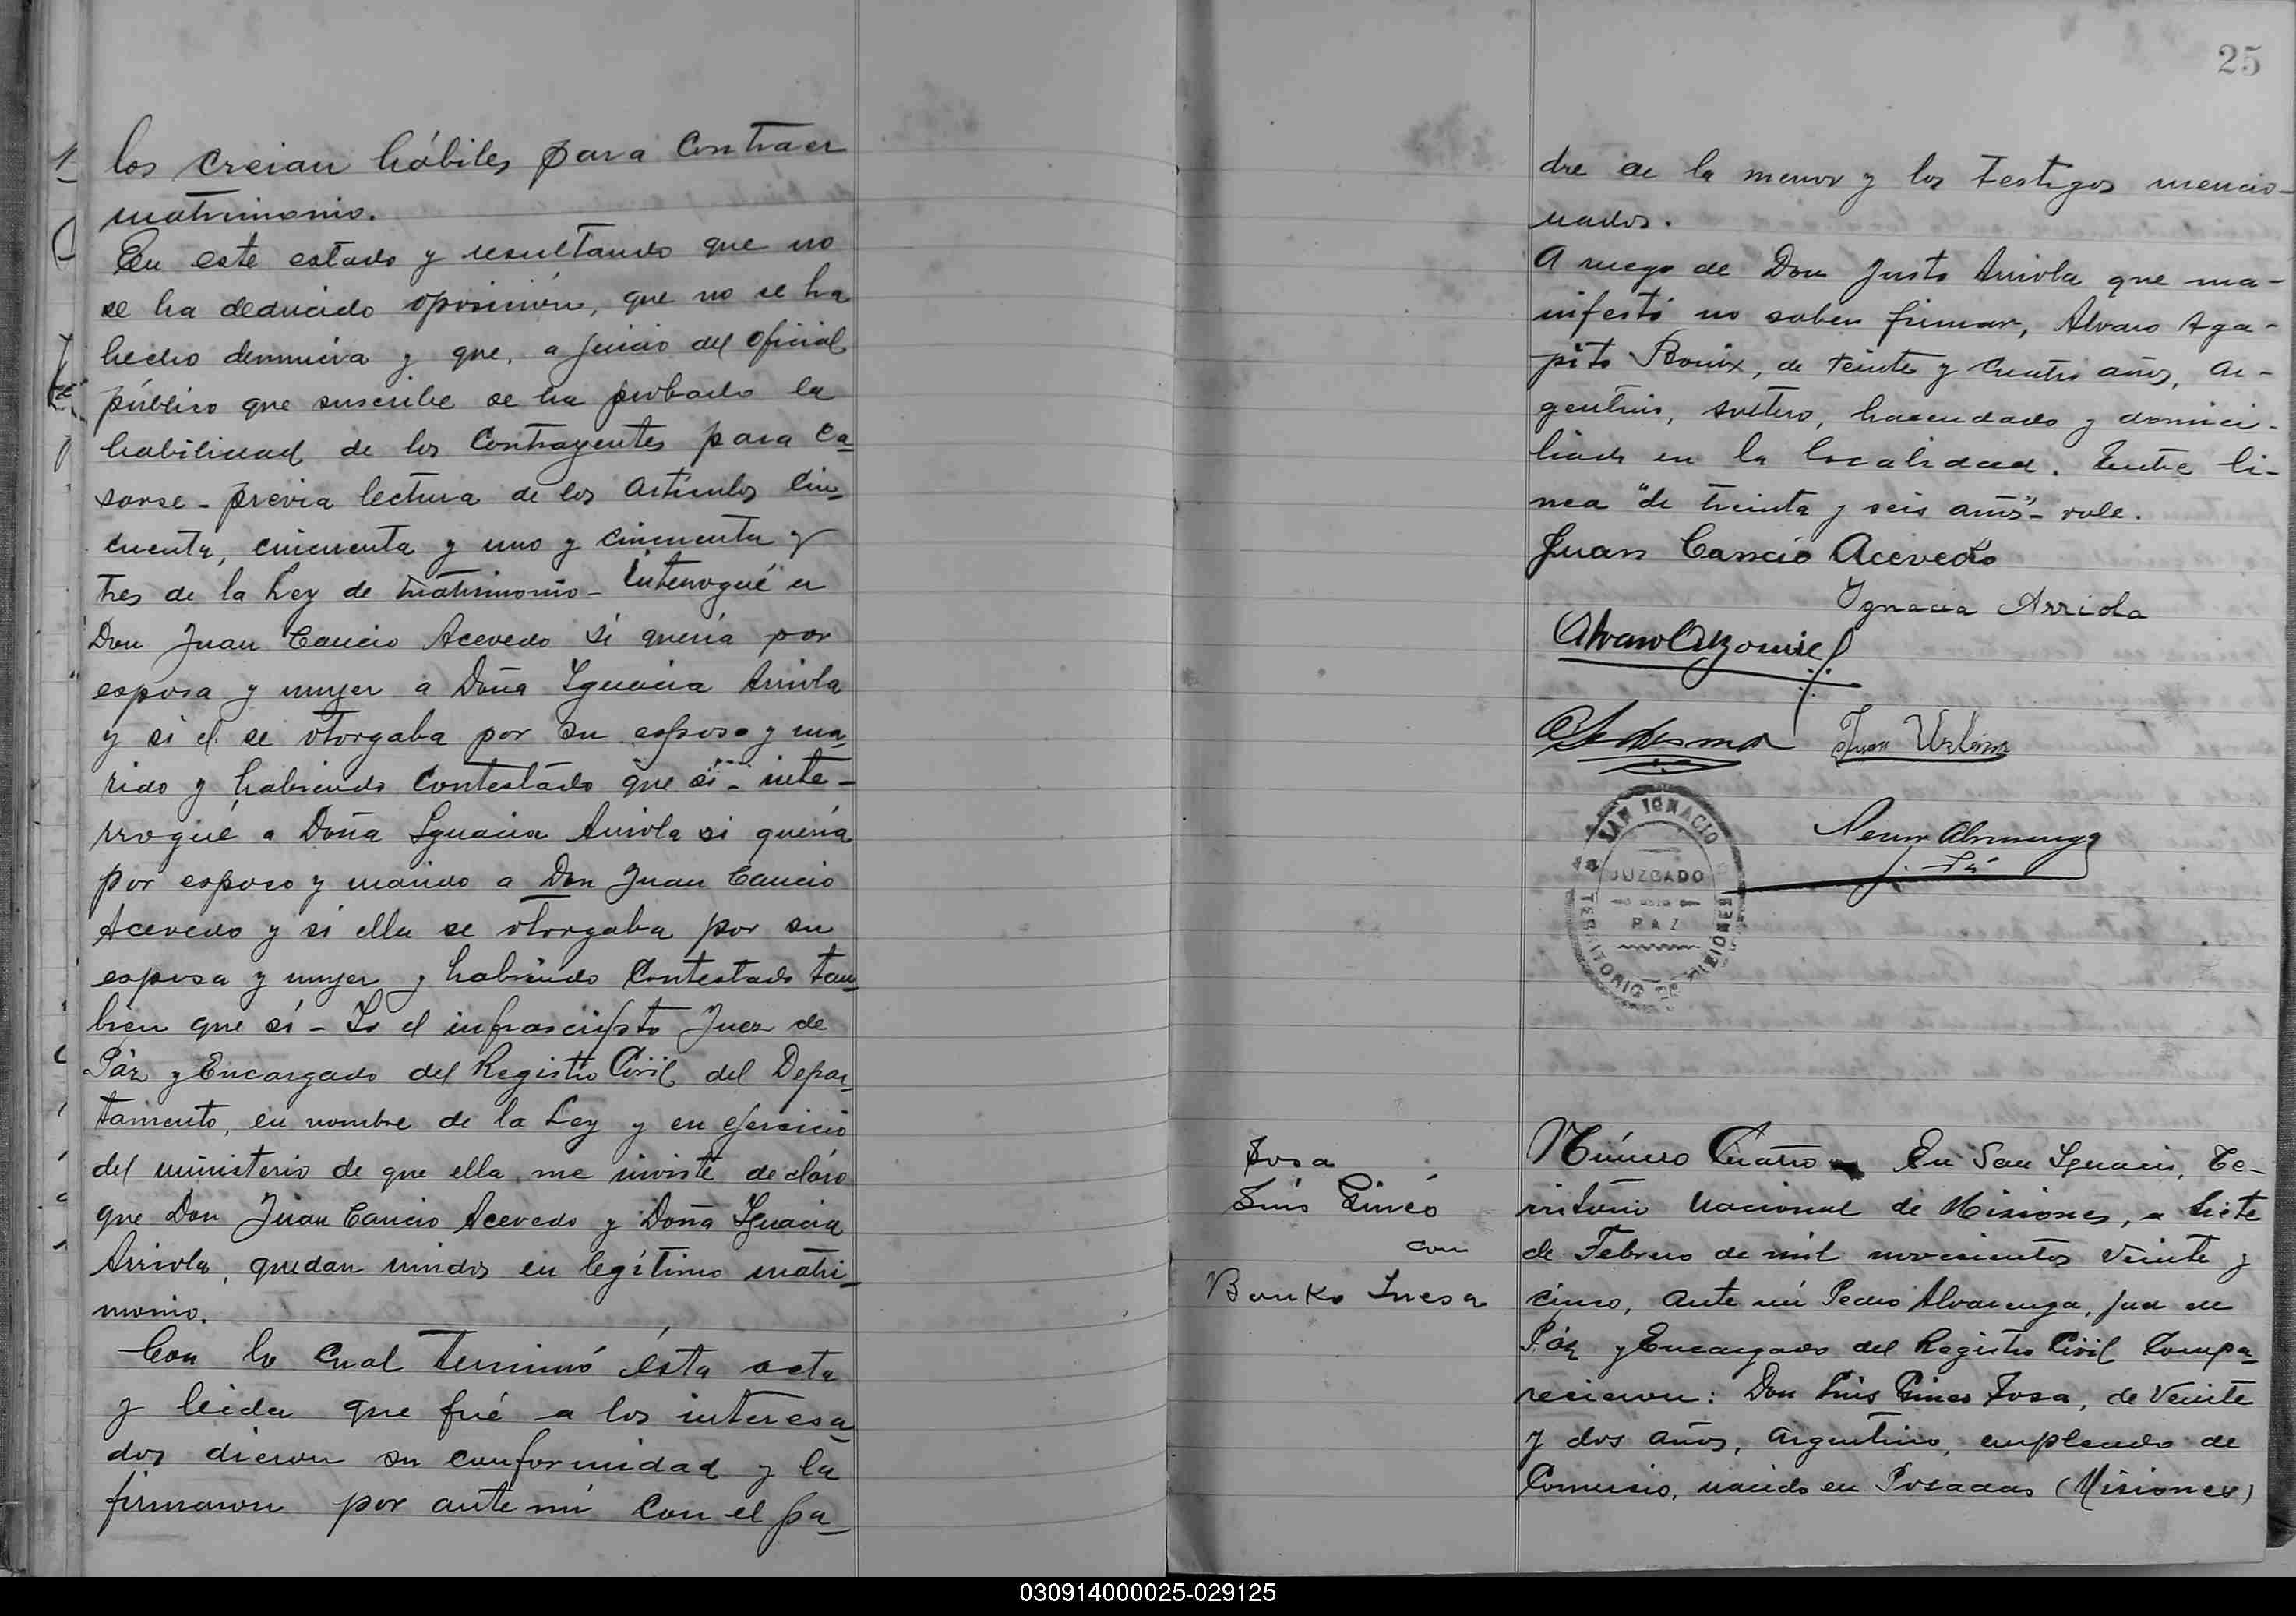 los creian hábiles para contraer
matrimonio.
En este estado y resultando que no
se ha deducido oposición, que no se ha
hecho denuncia y que, a juicio del oficial
público que suscribe se ha probado la
habilidad de los Contrayentes para ca-
sarse - previa lectura de los artículos cin-
cuenta, cincuenta y uno y cincuenta y
tres de la Ley de Matrimonio - Interrogué a
Don Juan Cancio Acevedo si quería por
esposa y mujer a Doña Ignacia Arriola
y si el se otorgaba por su esposo y ma-
rido y habiendo Contestado que si - inte-
rrogué a Doña Ignacia Arriola si quería
por esposo y marido a Don Juan Cancio
Acevedo y si ella se otorgaba por su
esposa y mujer y habiendo Contestado tam-
bien que sí - Yo el infrascripto Juez de
Páz y Encargado del Registro Civil del Depar-
tamento, en nombre de la Ley y en ejercicio
del ministerio de que ella me inviste declaro
que Don Juan Cancio Acevedo y Doña Ignacia
Arriola, quedan unidos en legítimo matri-
monio.
Con lo cual terminó ésta acta
y leida que fué a los interesa-
dos dieron su conformidad y la
firmaron por ante mi con el pa-
25
dre de la menor y los testigos mencio-
nados.
A ruego de Don Justo Arriola que ma-
nifestó no saber firmar, Alvaro Aga-
pito, de veinte y cuatro años, ar-
gentino, soltero, hacendado y domici-
liado en la localidad. Entre li-
nea "de treinta y seis años" - vale.
Juan Cancio Acevedo
Ignacia Arriola
Juan
SAN IGNACIO
JUZGADO
DE
PAZ
TERRITORIO DE MISIONES
Sosa
Luis Pineo
con
Bonko Inesa
Número Cuatro En San Ignacio, Te-
rritorio Nacional de Misiones, a siete
de Febrero de mil novecientos veinte y
cinco, ante mi Pedro Alvarenga, Juez de
Páz y Encargado del Registro Civil Compa-
recieron: Don Luis Pineo Sosa, de Veinte
y dos años, argentino, empleado de
Comercio, nacido en Posadas (Misiones)
030914000025-029125